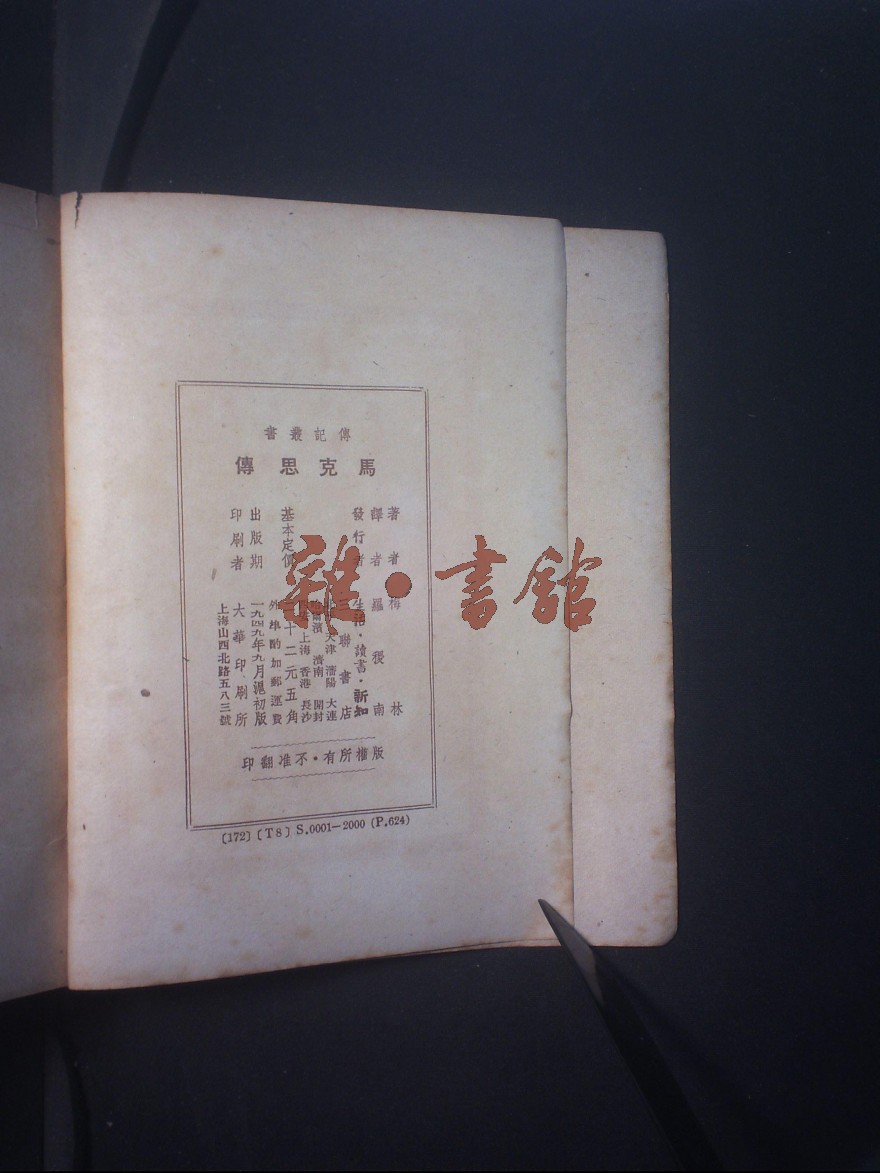 傳記叢書
馬克思傳
著者 梅林
譯者 羅稷南
發行者 生活·讀書·新知
三聯書店
天津 瀋陽 大連
哈爾濱 濟南 開封
上海 香港 長沙
基本定價 二十二元五角
外埠酌加郵運費
出版期 一九四九年九月滬初版
印刷者 大華印刷所
上海山西北路五八三號
版權所有·不准翻印
〔172〕〔T8〕S.0001—2000 (P.624)
雜·書館